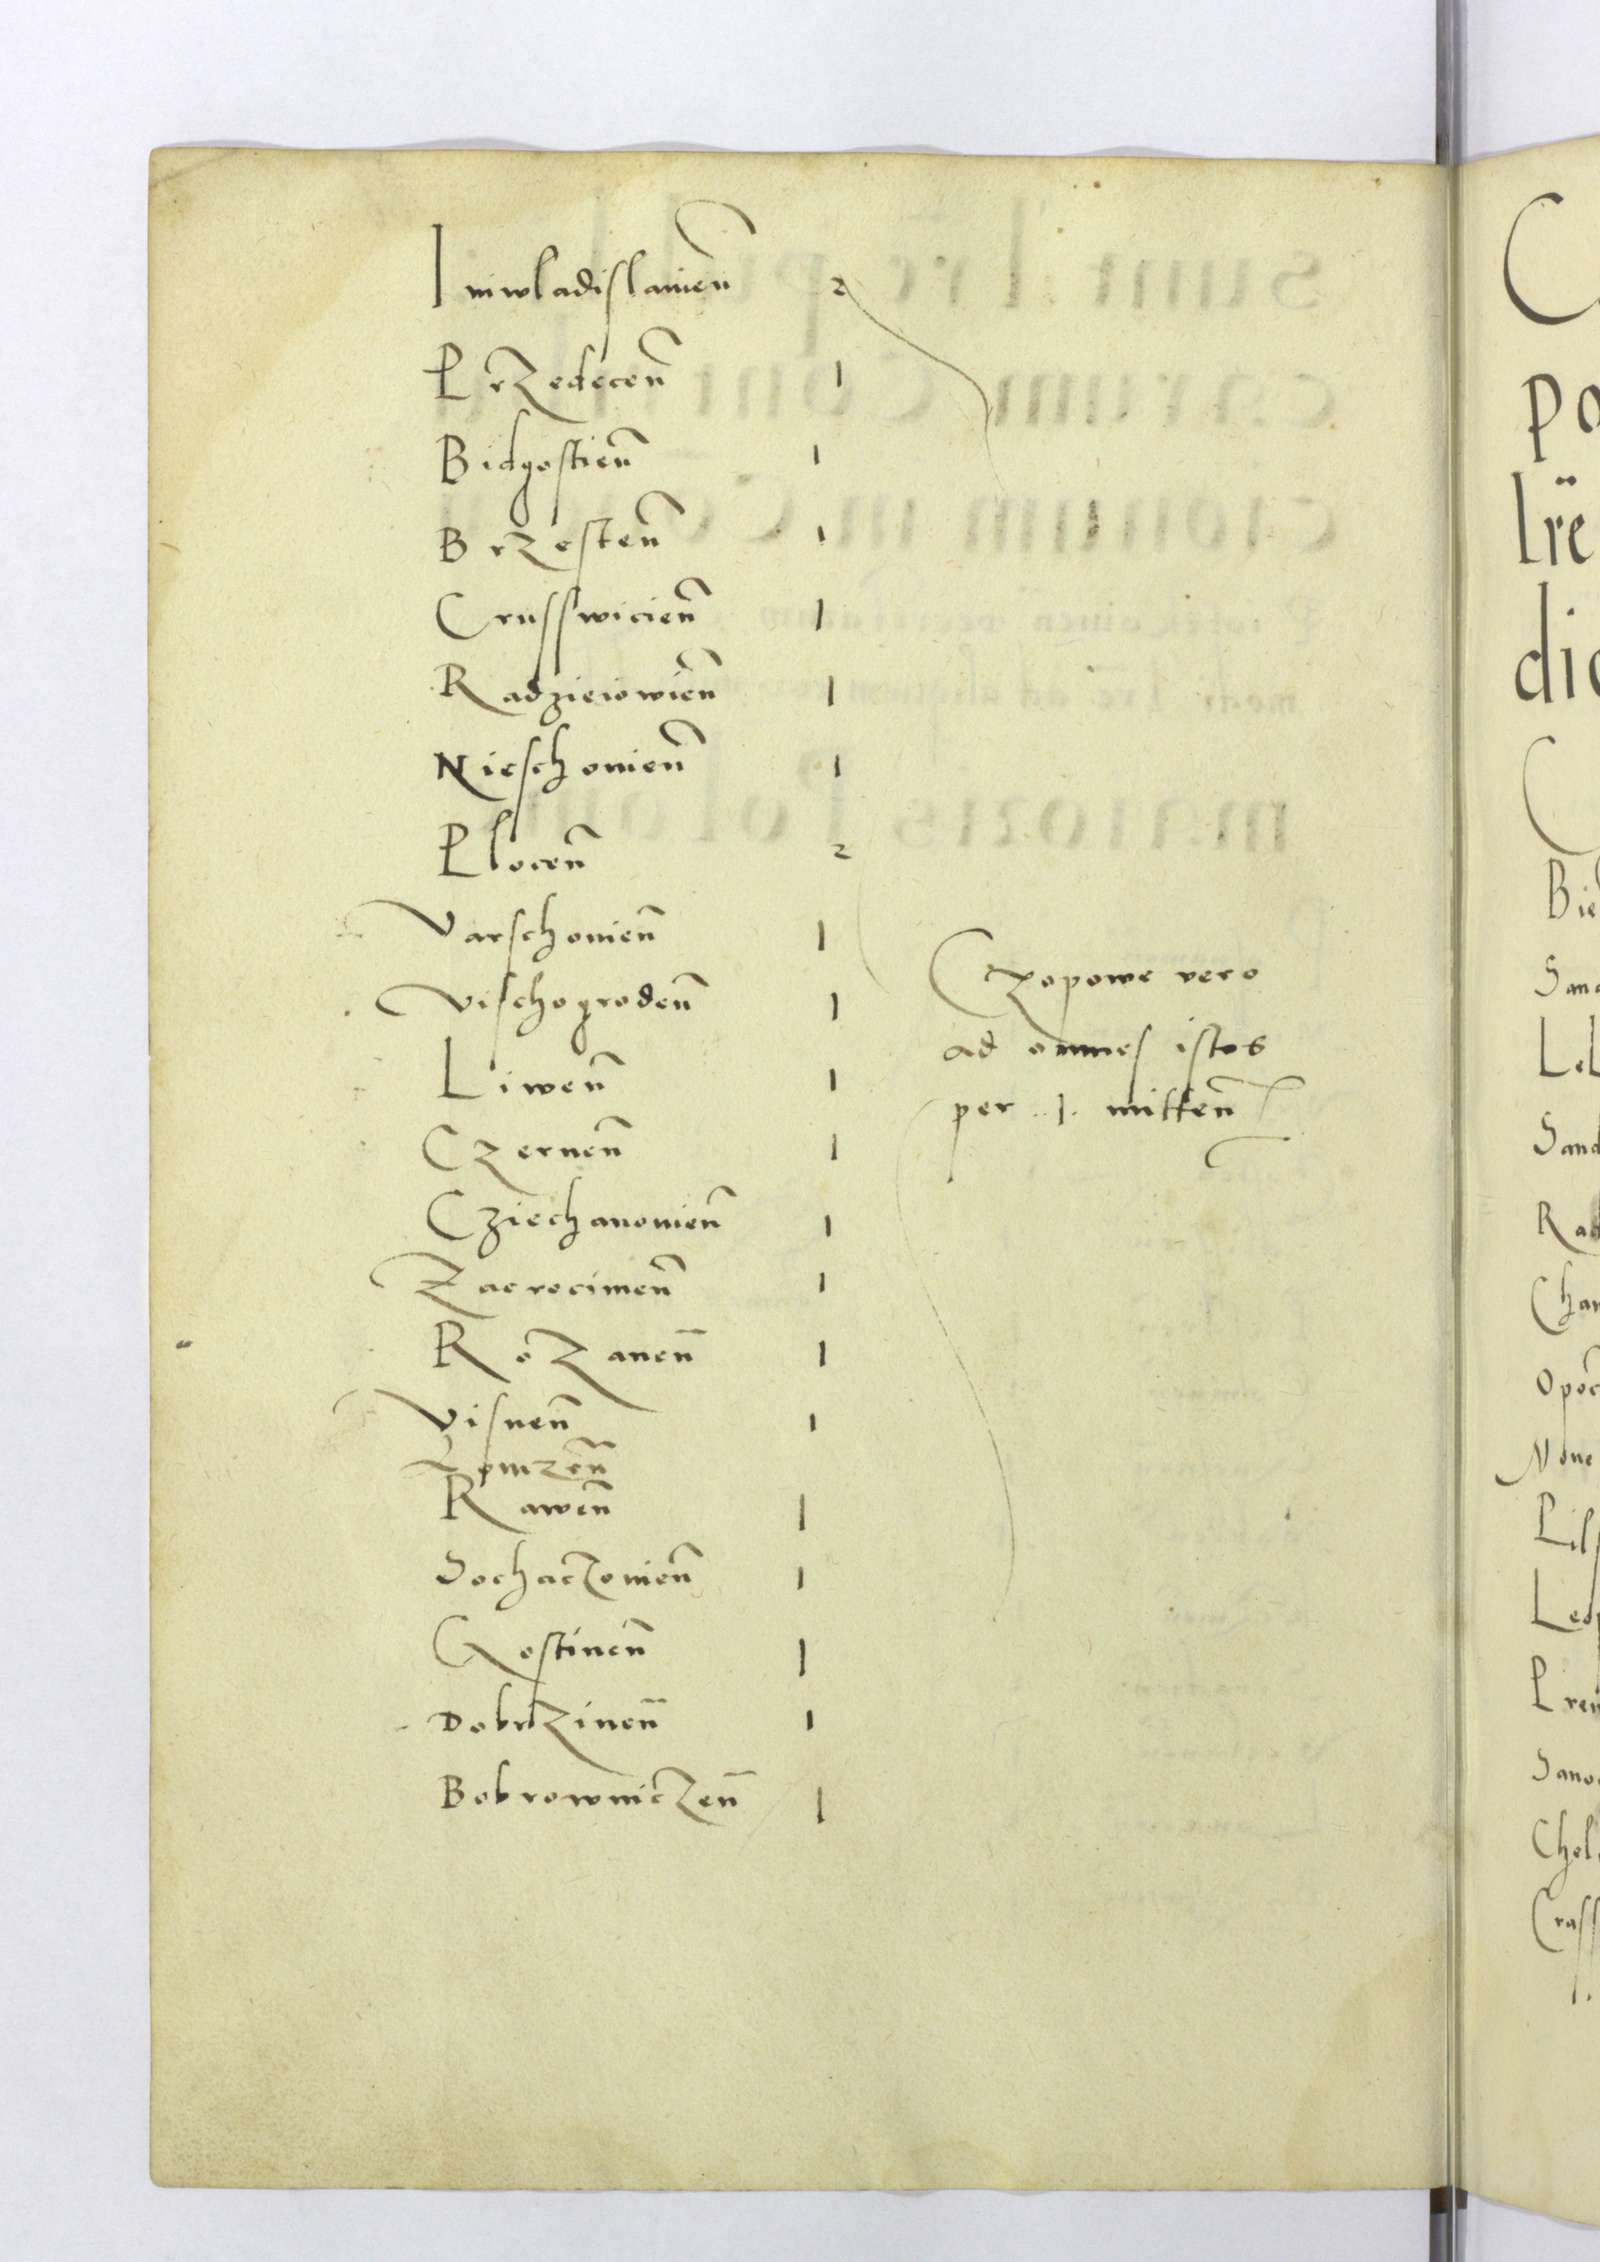 Iniwladislauien̄ 2
Przedecen̄ 1
Bidgostien̄ 1
Brzesten̄ 1
Crusswicien̄ 1
Radzieiowien̄ 1
Nieschouien̄ 1
Plocen̄ 2
Varschouien̄ 1
Vischogroden̄ 1
Liwen̄ 1
Czernen̄ 1
Cziechanouien̄ 1
Zacrocimen̄ 1
Rozanen̄ 1
Visnen̄ 1
Lomzen̄
Rawen̄ 1
Sochaczouien̄ 1
Gostinen̄ 1
Dobrzinen̄ 1
Bobrowniczen̄ 1
Czopowe vero
ad omnes istos
per .1. mitten̄
C
po
lr̄e
dic
Bie
Sanc
Lel
Sand
Rad
Chan
Opoc
Nove
Pils
Leop
Prem
Sano
Chel
Crass